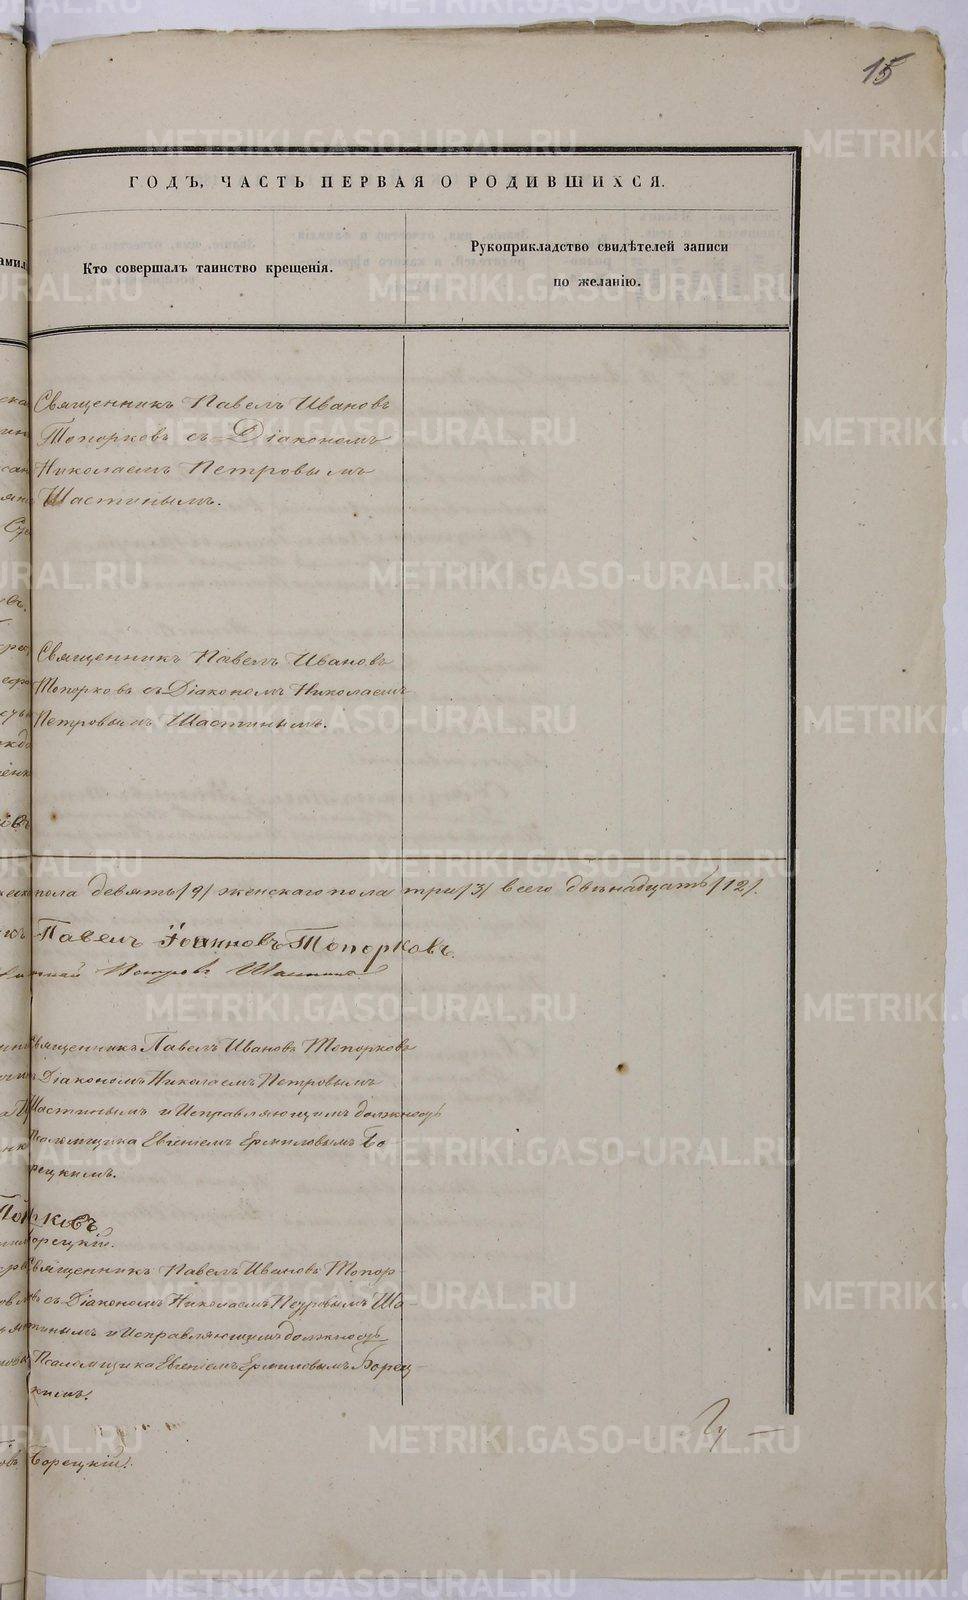 15
ГОДЪ, ЧАСТЬ ПЕРВАЯ О РОДИВШИХСЯ.
Кто совершалъ таинство крещенія.
Рукоприкладство свидѣтелей записи
по желанію.
Священникъ Павелъ Ивановъ
Топорковъ съ Діакономъ
Николаемъ Петровымъ
Шастинымъ.
Священникъ Павелъ Ивановъ
Топорковъ съ Діакономъ Николаемъ
Петровымъ Шастинымъ.
пола девять /9/ женскаго пола три /3/ всего двѣнадцать /12/.
Павелъ Іоанновъ Топорковъ.
Петровъ Шастинъ
Священникъ Павелъ Ивановъ Топорковъ
Діакономъ Николаемъ Петровымъ
Шастинымъ и Исправляющимъ должность
Псаломщика Евгеніемъ Ермиловымъ Бо
рецкимъ.
Борецкій.
Священникъ Павелъ Ивановъ Топор
ковъ съ Діакономъ Николаемъ Петровымъ Ша-
стинымъ и Исправляющимъ должность
Псаломщика Евгеніемъ Ермиловымъ Борец-
кимъ.
Борецкій.
METRIKI.GASO-URAL.RU